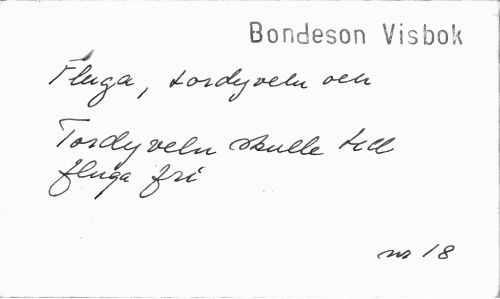 Bondeson Visbok
Fluga, tordyveln och
Tordyveln skulle till
fluga fri
nr 18